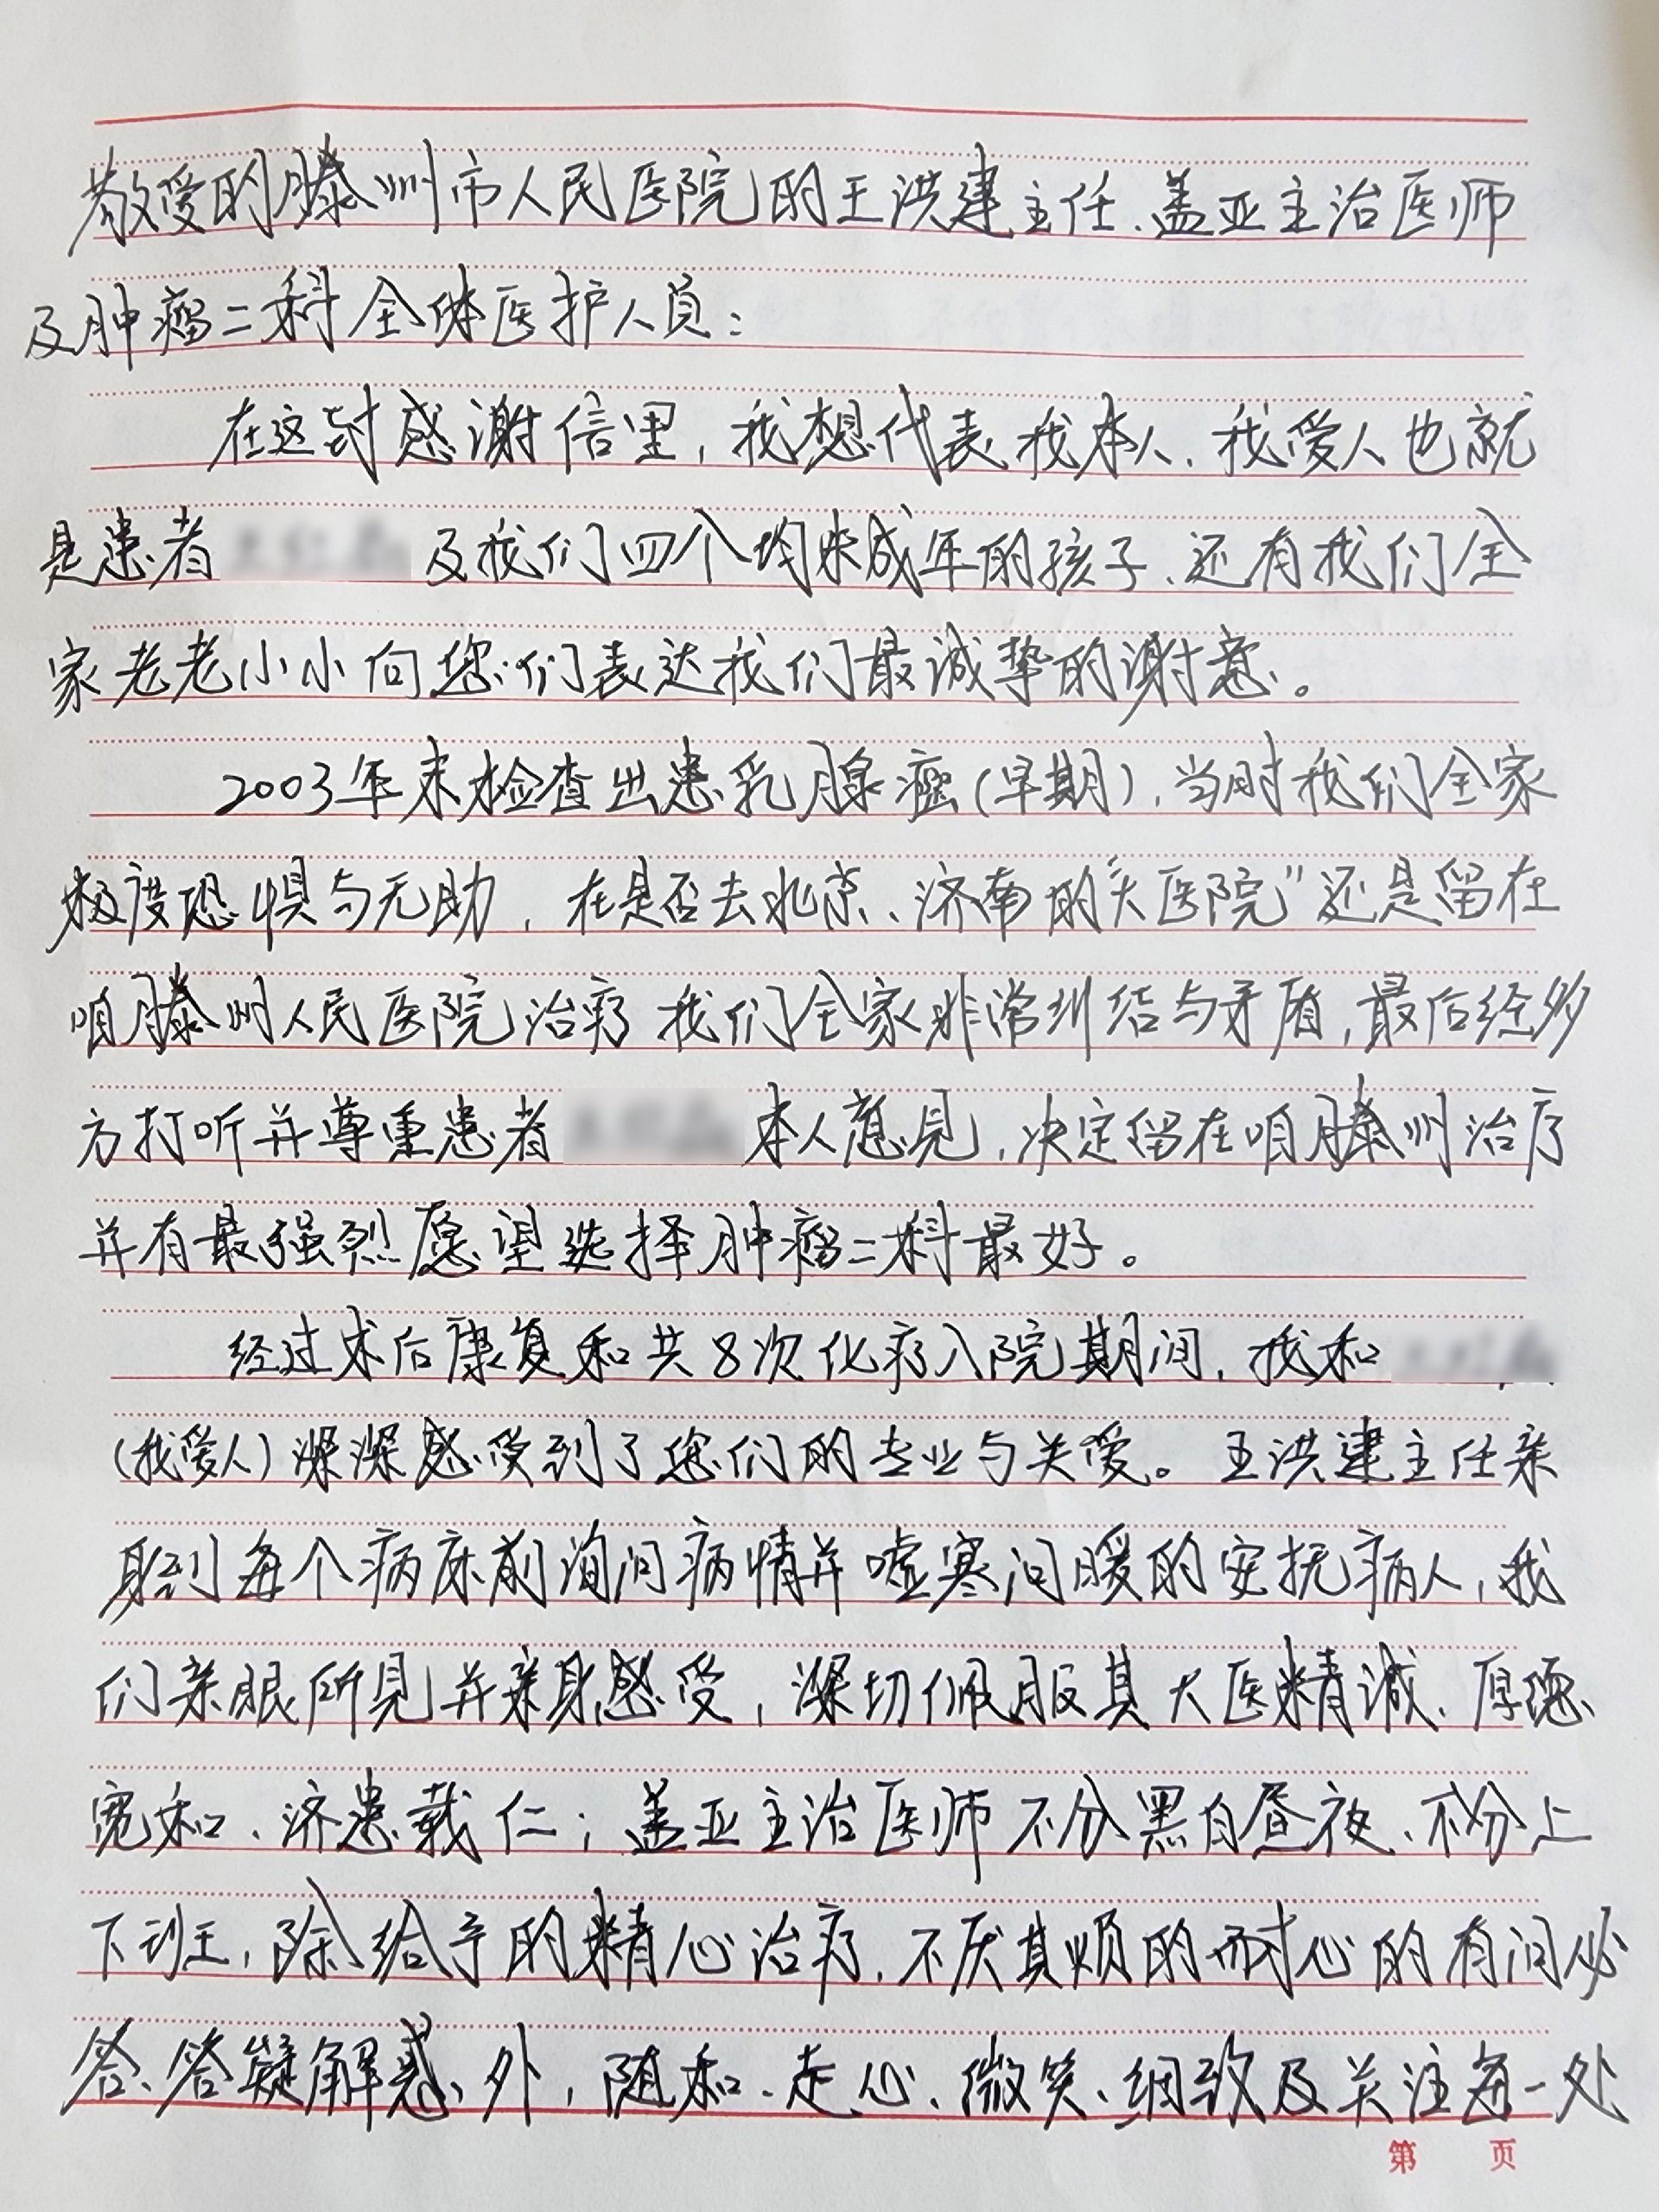 敬爱的滕州市人民医院的王洪建主任、盖亚主治医师
及肿瘤二科全体医护人员:
在这封感谢信里,我想代表我本人、我爱人也就
是患者 及我们四个均未成年的孩子、还有我们全
家老老小小向您们表达我们最诚挚的谢意。
2003年末检查出患乳腺癌(早期),当时我们全家
极度恐惧与无助,在是否去北京、济南的“大医院”还是留在
咱滕州人民医院治疗我们全家非常纠结与矛盾,最后经多
方打听并尊重患者 本人意见,决定留在咱滕州治疗
并有最强烈愿望选择肿瘤二科最好。
经过术后康复和共8次化疗入院期间,我和
(我爱人)深深感受到了您们的专业与关爱。王洪建主任亲
身到每个病床前询问病情并嘘寒问暖的安抚病人,我
们亲眼所见并亲身感受,深切佩服其大医精诚、厚德
宽和、济患载仁;盖亚主治医师不分黑白昼夜、不分上
下班,除给予的精心治疗,不厌其烦的耐心的有问必
答、答疑解惑外,随和、走心、微笑、细致及关注每一处
第 页